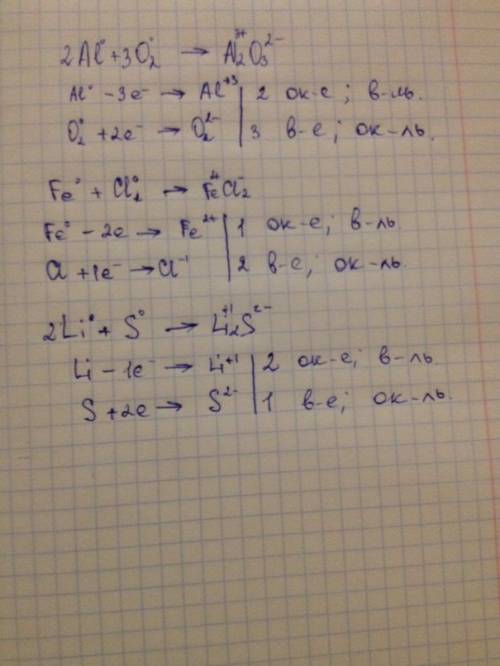 2Al⁰ + 3O₂⁰ → Al₂³⁺O₃²⁻
Al⁰ - 3e⁻ → Al⁺³ | 2 ок-е ; в-ль.
O₂⁰ + 2e⁻ → O₂²⁻ | 3 в-е ; ок-ль.
Fe⁰ + Cl₂⁰ → FeCl₂⁻
Fe⁰ - 2e → Fe²⁺ | 1 ок-е; в-ль
Cl + 1e⁻ → Cl⁻¹ | 2 в-е; ок-ль.
2Li⁰ + S⁰ → Li₂⁺¹S²⁻
Li - 1e⁻ → Li⁺¹ | 2 ок-е; в-ль.
S + 2e → S²⁻ | 1 в-е; ок-ль.